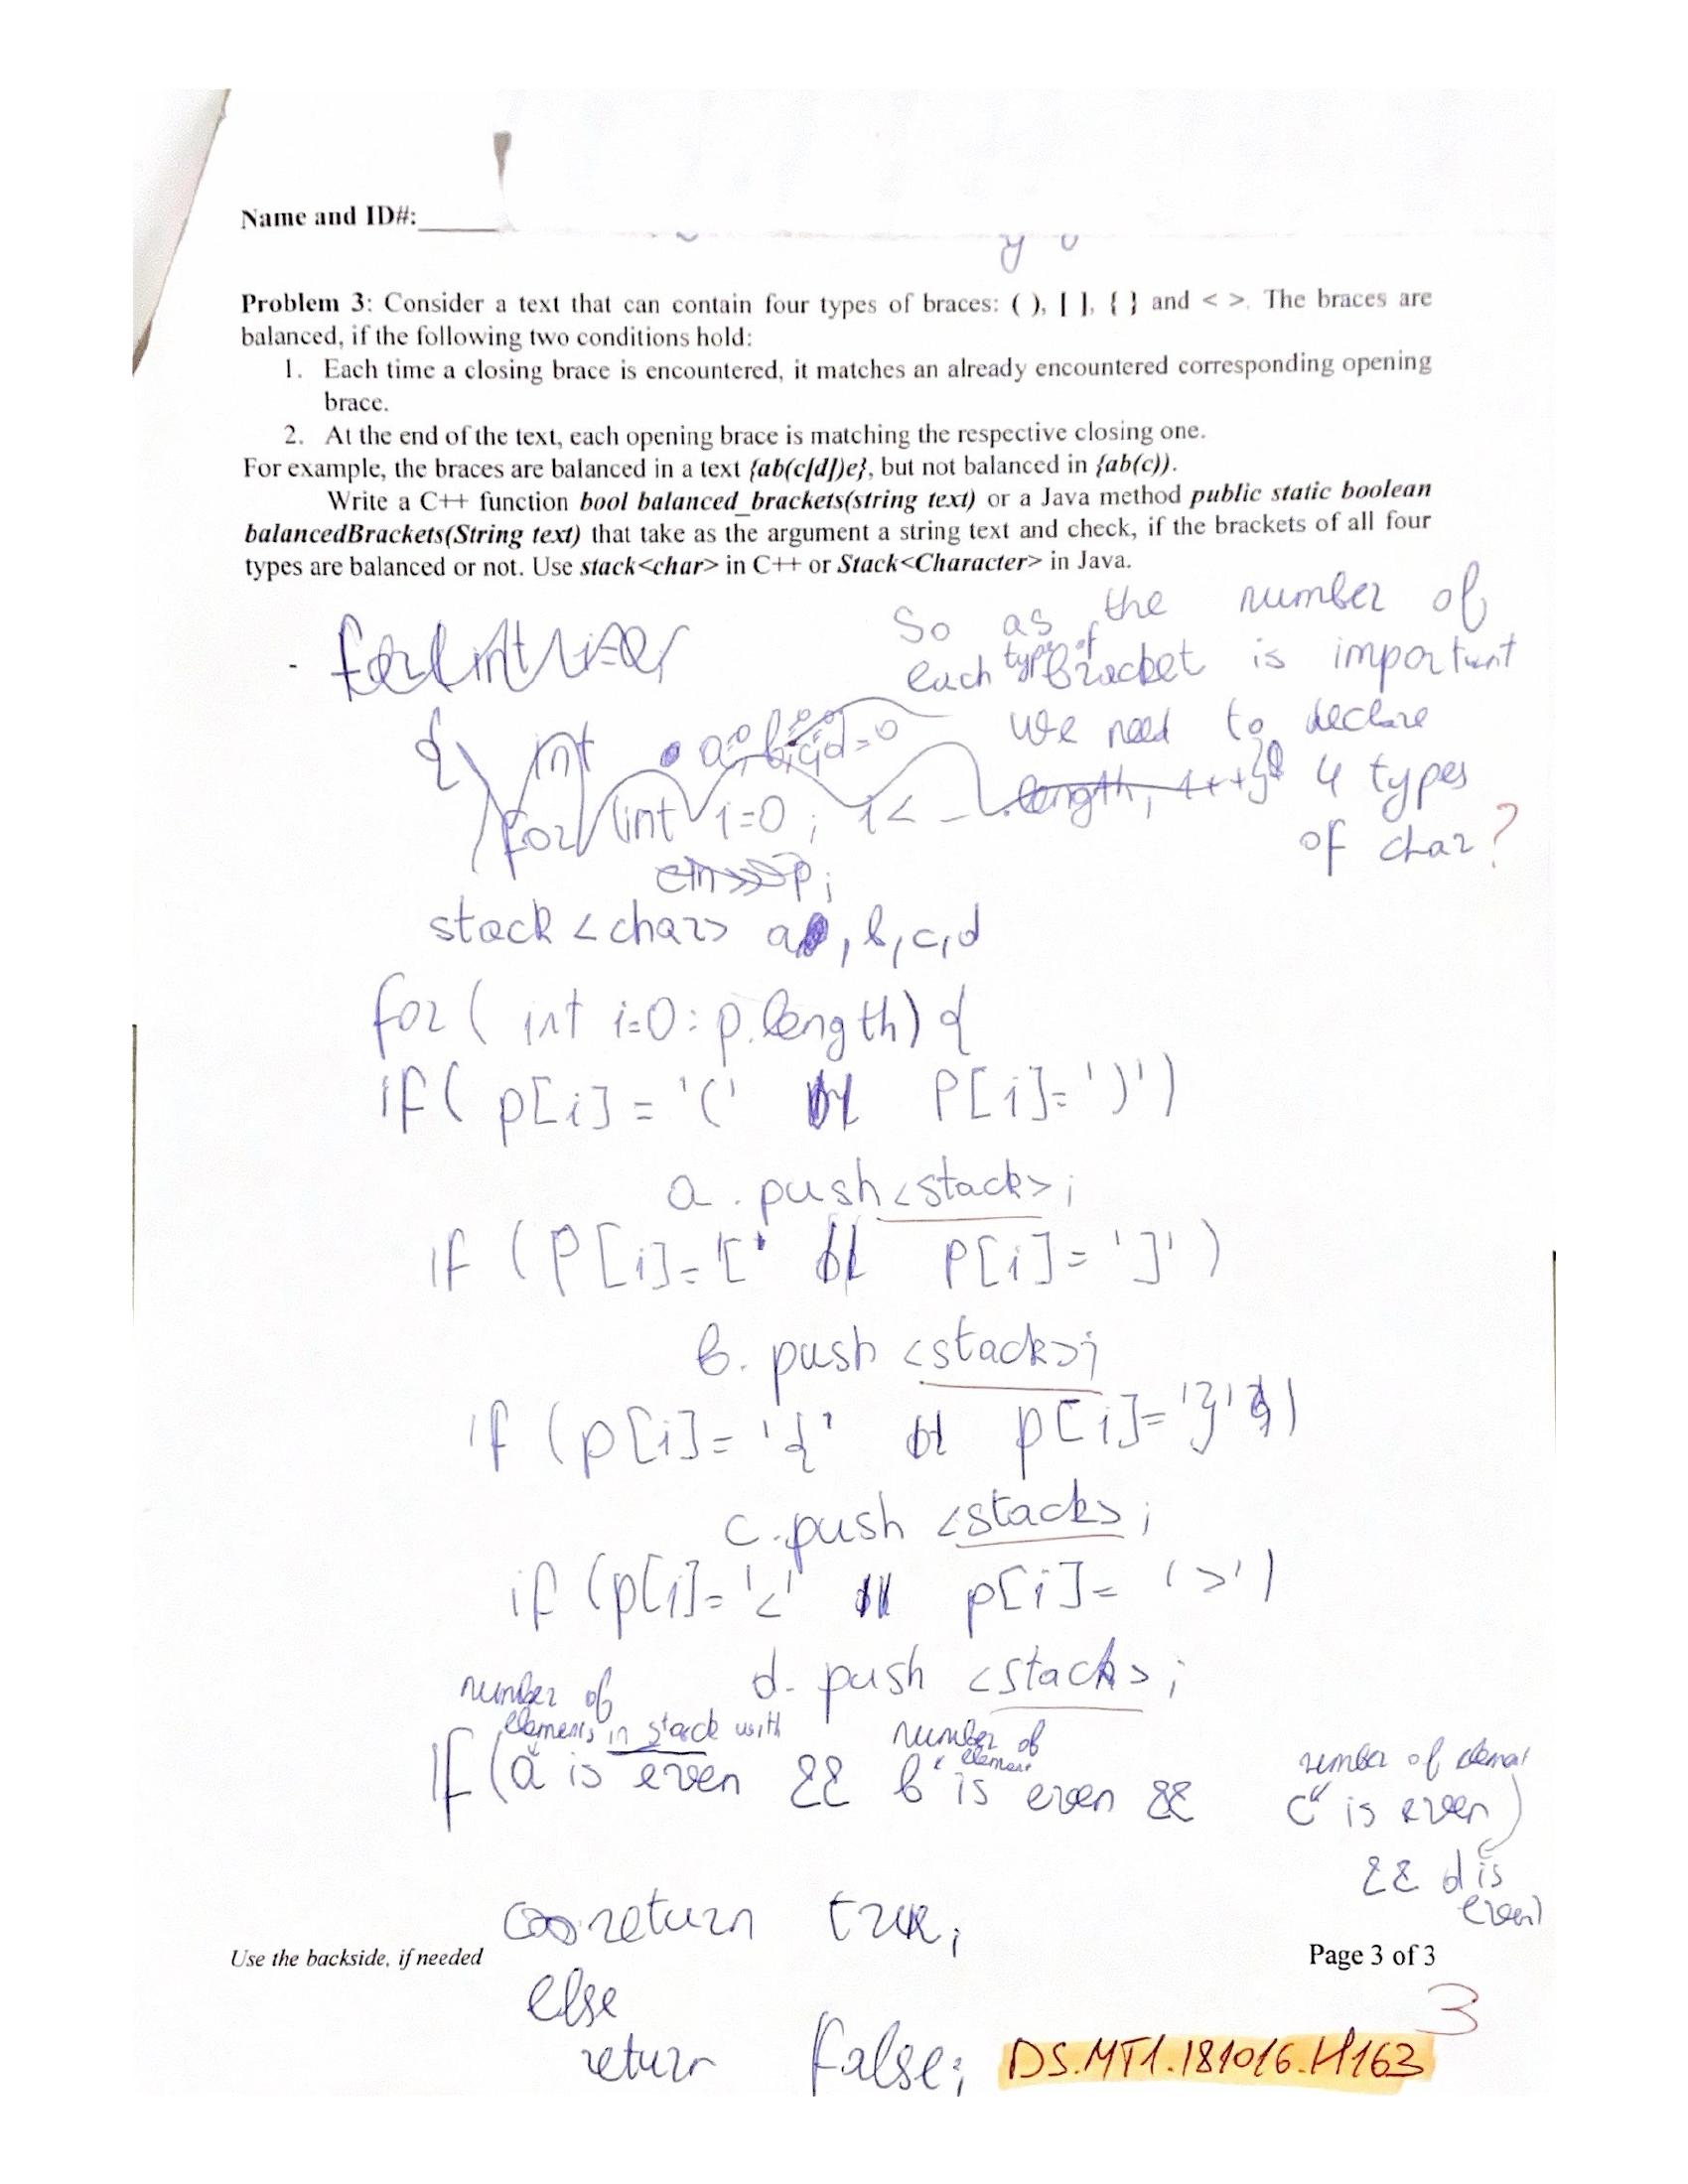 Name and ID#:
Problem 3: Consider a text that can contain four types of braces: ( ), [ ], { } and < >. The braces are
balanced, if the following two conditions hold:
1. Each time a closing brace is encountered, it matches an already encountered corresponding opening
brace.
2. At the end of the text, each opening brace is matching the respective closing one.
For example, the braces are balanced in a text {ab(c[d])e}, but not balanced in {ab(c)).
Write a C++ function bool balanced_brackets(string text) or a Java method public static boolean
balancedBrackets(String text) that take as the argument a string text and check, if the brackets of all four
types are balanced or not. Use stack<char> in C++ or Stack<Character> in Java.
So as the number of
each type of bracket is important
we need to declare
4 types
of char ?
{ int
for (int i=0; i< .length, i++){
cin>>p;
stack <char> a, b, c, d
for ( int i=0: p.length) {
if( p[i] = '(' P[i]= ')')
a . push <stack>;
if (P[i]= '[' P[i]= ']')
b. push <stack>;
if (p[i]= '{' p[i]= '}')
c. push <stack>;
if (p[i]= '<' p[i]= '>')
d. push <stack>;
number of elements in stack with
number of element
number of
If (a is even && b is even && c is even
&& d is
even)
return true;
Use the backside, if needed
Page 3 of 3
else
3
return false;
DS.MT1.181016.H163